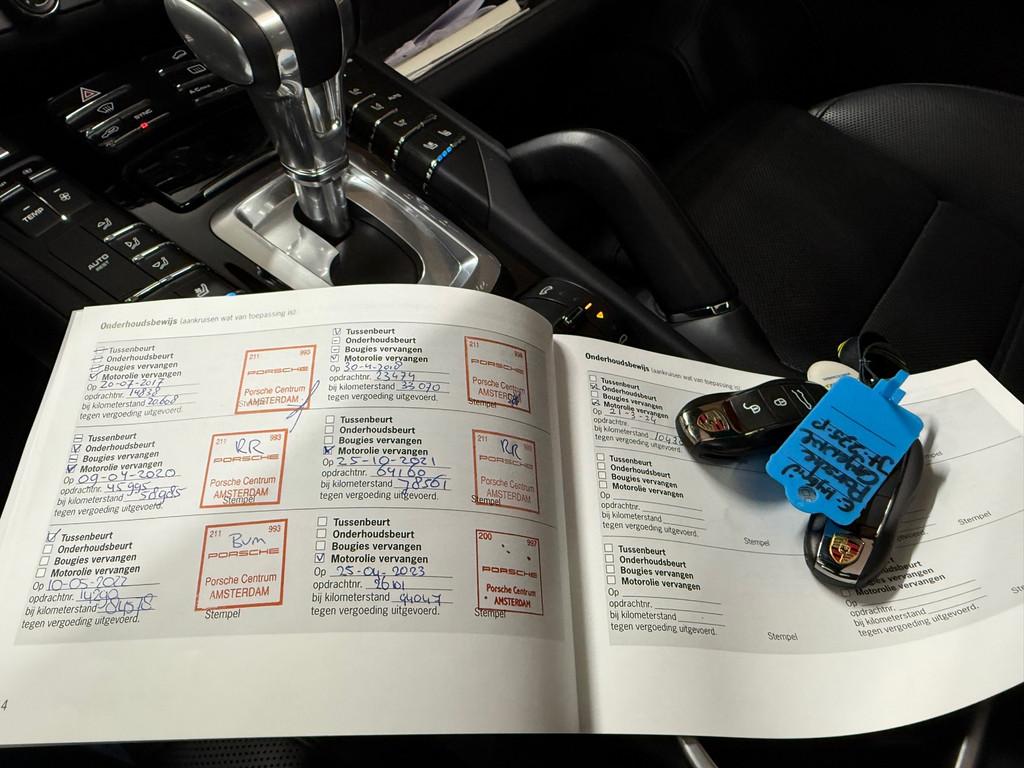 SYNC
A/C MAX
TEMP
AUTO
REST
Onderhoudsbewijs (aankruisen wat van toepassing is)
Tussenbeurt
Onderhoudsbeurt
Bougies vervangen
Motorolie vervangen
Op 20-07-2017
opdrachtnr.
bij kilometerstand
tegen vergoeding uitgevoerd.
211 993
PORSCHE
Porsche Centrum
AMSTERDAM
Stempel
Tussenbeurt
Onderhoudsbeurt
Bougies vervangen
Motorolie vervangen
Op 30-4-2018
opdrachtnr. 23474
bij kilometerstand 33070
tegen vergoeding uitgevoerd.
211
PORSCHE
Porsche Centrum
AMSTERDAM
Stempel
Tussenbeurt
Onderhoudsbeurt
Bougies vervangen
Motorolie vervangen
Op 09-04-2020
opdrachtnr. 45995
bij kilometerstand 58985
tegen vergoeding uitgevoerd.
211 993
RR
PORSCHE
Porsche Centrum
AMSTERDAM
Stempel
Tussenbeurt
Onderhoudsbeurt
Bougies vervangen
Motorolie vervangen
Op 25-10-2021
opdrachtnr. 64160
bij kilometerstand 78561
tegen vergoeding uitgevoerd.
211 993
RR
PORSCHE
Porsche Centrum
AMSTERDAM
Stempel
Tussenbeurt
Onderhoudsbeurt
Bougies vervangen
Motorolie vervangen
Op 10-05-2022
opdrachtnr. 14290
bij kilometerstand
tegen vergoeding uitgevoerd.
211 993
Bum
PORSCHE
Porsche Centrum
AMSTERDAM
Stempel
Tussenbeurt
Onderhoudsbeurt
Bougies vervangen
Motorolie vervangen
Op 25-04-2023
opdrachtnr.
bij kilometerstand 94047
tegen vergoeding uitgevoerd.
200 997
PORSCHE
Porsche Centrum
AMSTERDAM
Stempel
4
Onderhoudsbewijs (aankruisen wat van toepassing is)
Tussenbeurt
Onderhoudsbeurt
Bougies vervangen
Motorolie vervangen
Op 21-3-24
opdrachtnr.
bij kilometerstand
tegen vergoeding uitgevoerd.
Tussenbeurt
Onderhoudsbeurt
Bougies vervangen
Motorolie vervangen
Op
opdrachtnr.
bij kilometerstand
tegen vergoeding uitgevoerd.
Stempel
Stempel
Tussenbeurt
Onderhoudsbeurt
Bougies vervangen
Motorolie vervangen
Op
opdrachtnr.
bij kilometerstand
tegen vergoeding uitgevoerd.
Stempel
vervangen
Op
opdrachtnr.
bij kilometerstand
tegen vergoeding uitgevoerd.
Stempel
Porsche
Cayenne